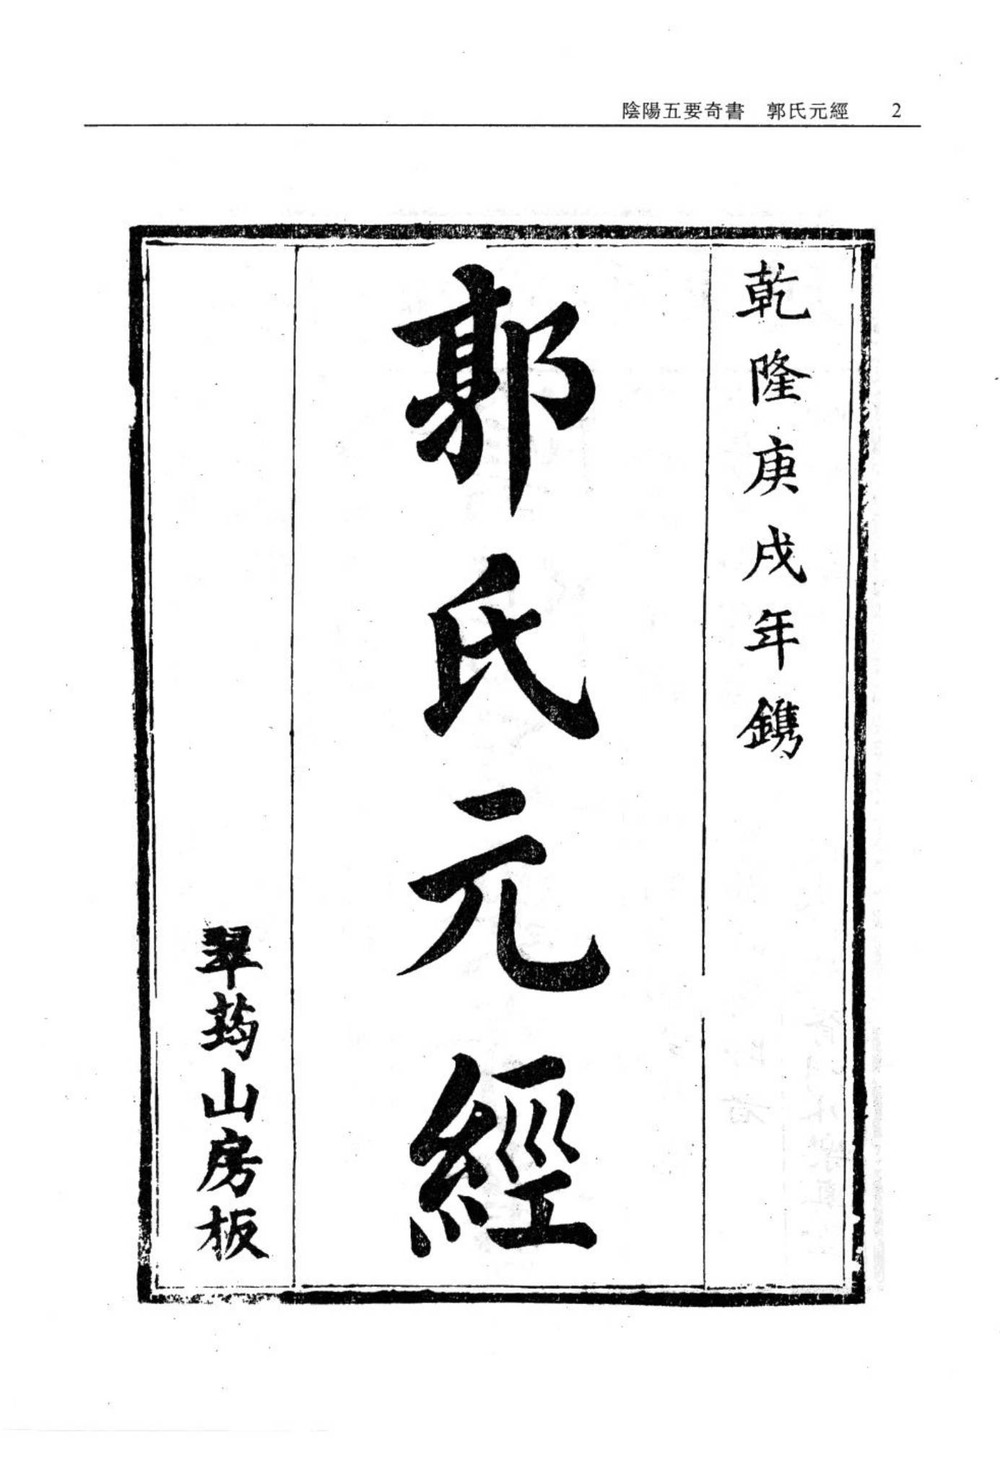 陰陽五要奇書　郭氏元經　2
乾隆庚戌年鐫
郭氏元經
翠筠山房板